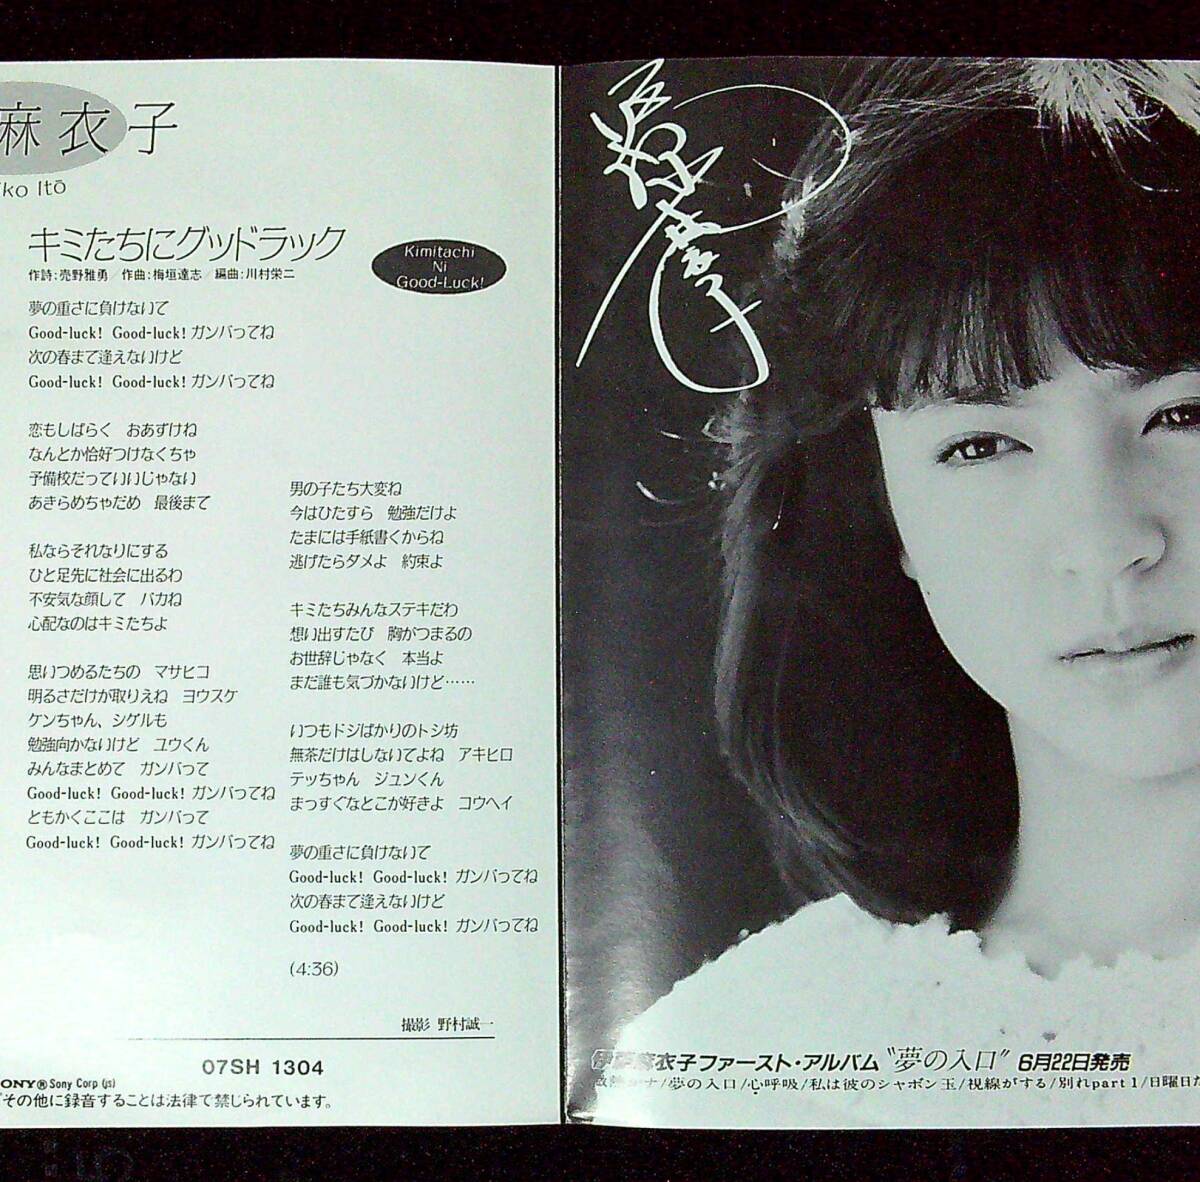 麻衣子
ko Itō
キミたちにグッドラック
作詩:売野雅勇／作曲:梅垣達志／編曲:川村栄二
Kimitachi
Ni
Good-Luck!
夢の重さに負けないで
Good-luck! Good-luck! ガンバってね
次の春まで逢えないけど
Good-luck! Good-luck! ガンバってね
恋もしばらく おあずけね
なんとか恰好つけなくちゃ
予備校だっていいじゃない
あきらめちゃだめ 最後まで
私ならそれなりにする
ひと足先に社会に出るわ
不安気な顔して バカね
心配なのはキミたちよ
思いつめるたちの マサヒコ
明るさだけが取りえね ヨウスケ
ケンちゃん、シゲルも
勉強向かないけど ユウくん
みんなまとめて ガンバって
Good-luck! Good-luck! ガンバってね
ともかくここは ガンバって
Good-luck! Good-luck! ガンバってね
男の子たち大変ね
今はひたすら 勉強だけよ
たまには手紙書くからね
逃げたらダメよ 約束よ
キミたちみんなステキだわ
想い出すたび 胸がつまるの
お世辞じゃなく 本当よ
まだ誰も気づかないけど……
いつもドジばかりのトシ坊
無茶だけはしないでよね アキヒロ
テッちゃん ジュンくん
まっすぐなとこが好きよ コウヘイ
夢の重さに負けないで
Good-luck! Good-luck! ガンバってね
次の春まで逢えないけど
Good-luck! Good-luck! ガンバってね
(4:36)
撮影 野村誠一
07SH 1304
SONY® Sony Corp (js)
その他に録音することは法律で禁じられています。
伊藤麻衣子ファースト・アルバム〝夢の入口〟 6月22日発売
夢の入口/心呼吸/私は彼のシャボン玉/視線がする/別れpart1/日曜日だ